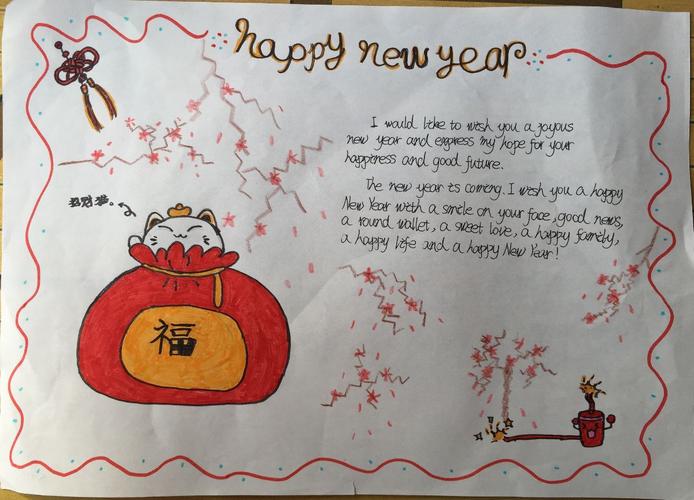 happy new year
I would like to wish you a joyous
new year and express my hope for your
happiness and good future.
The new year is coming. I wish you a happy
New Year with a smile on your face, good news,
a round wallet, a sweet love, a happy family,
a happy life and a happy New Year!
招财猫。
福